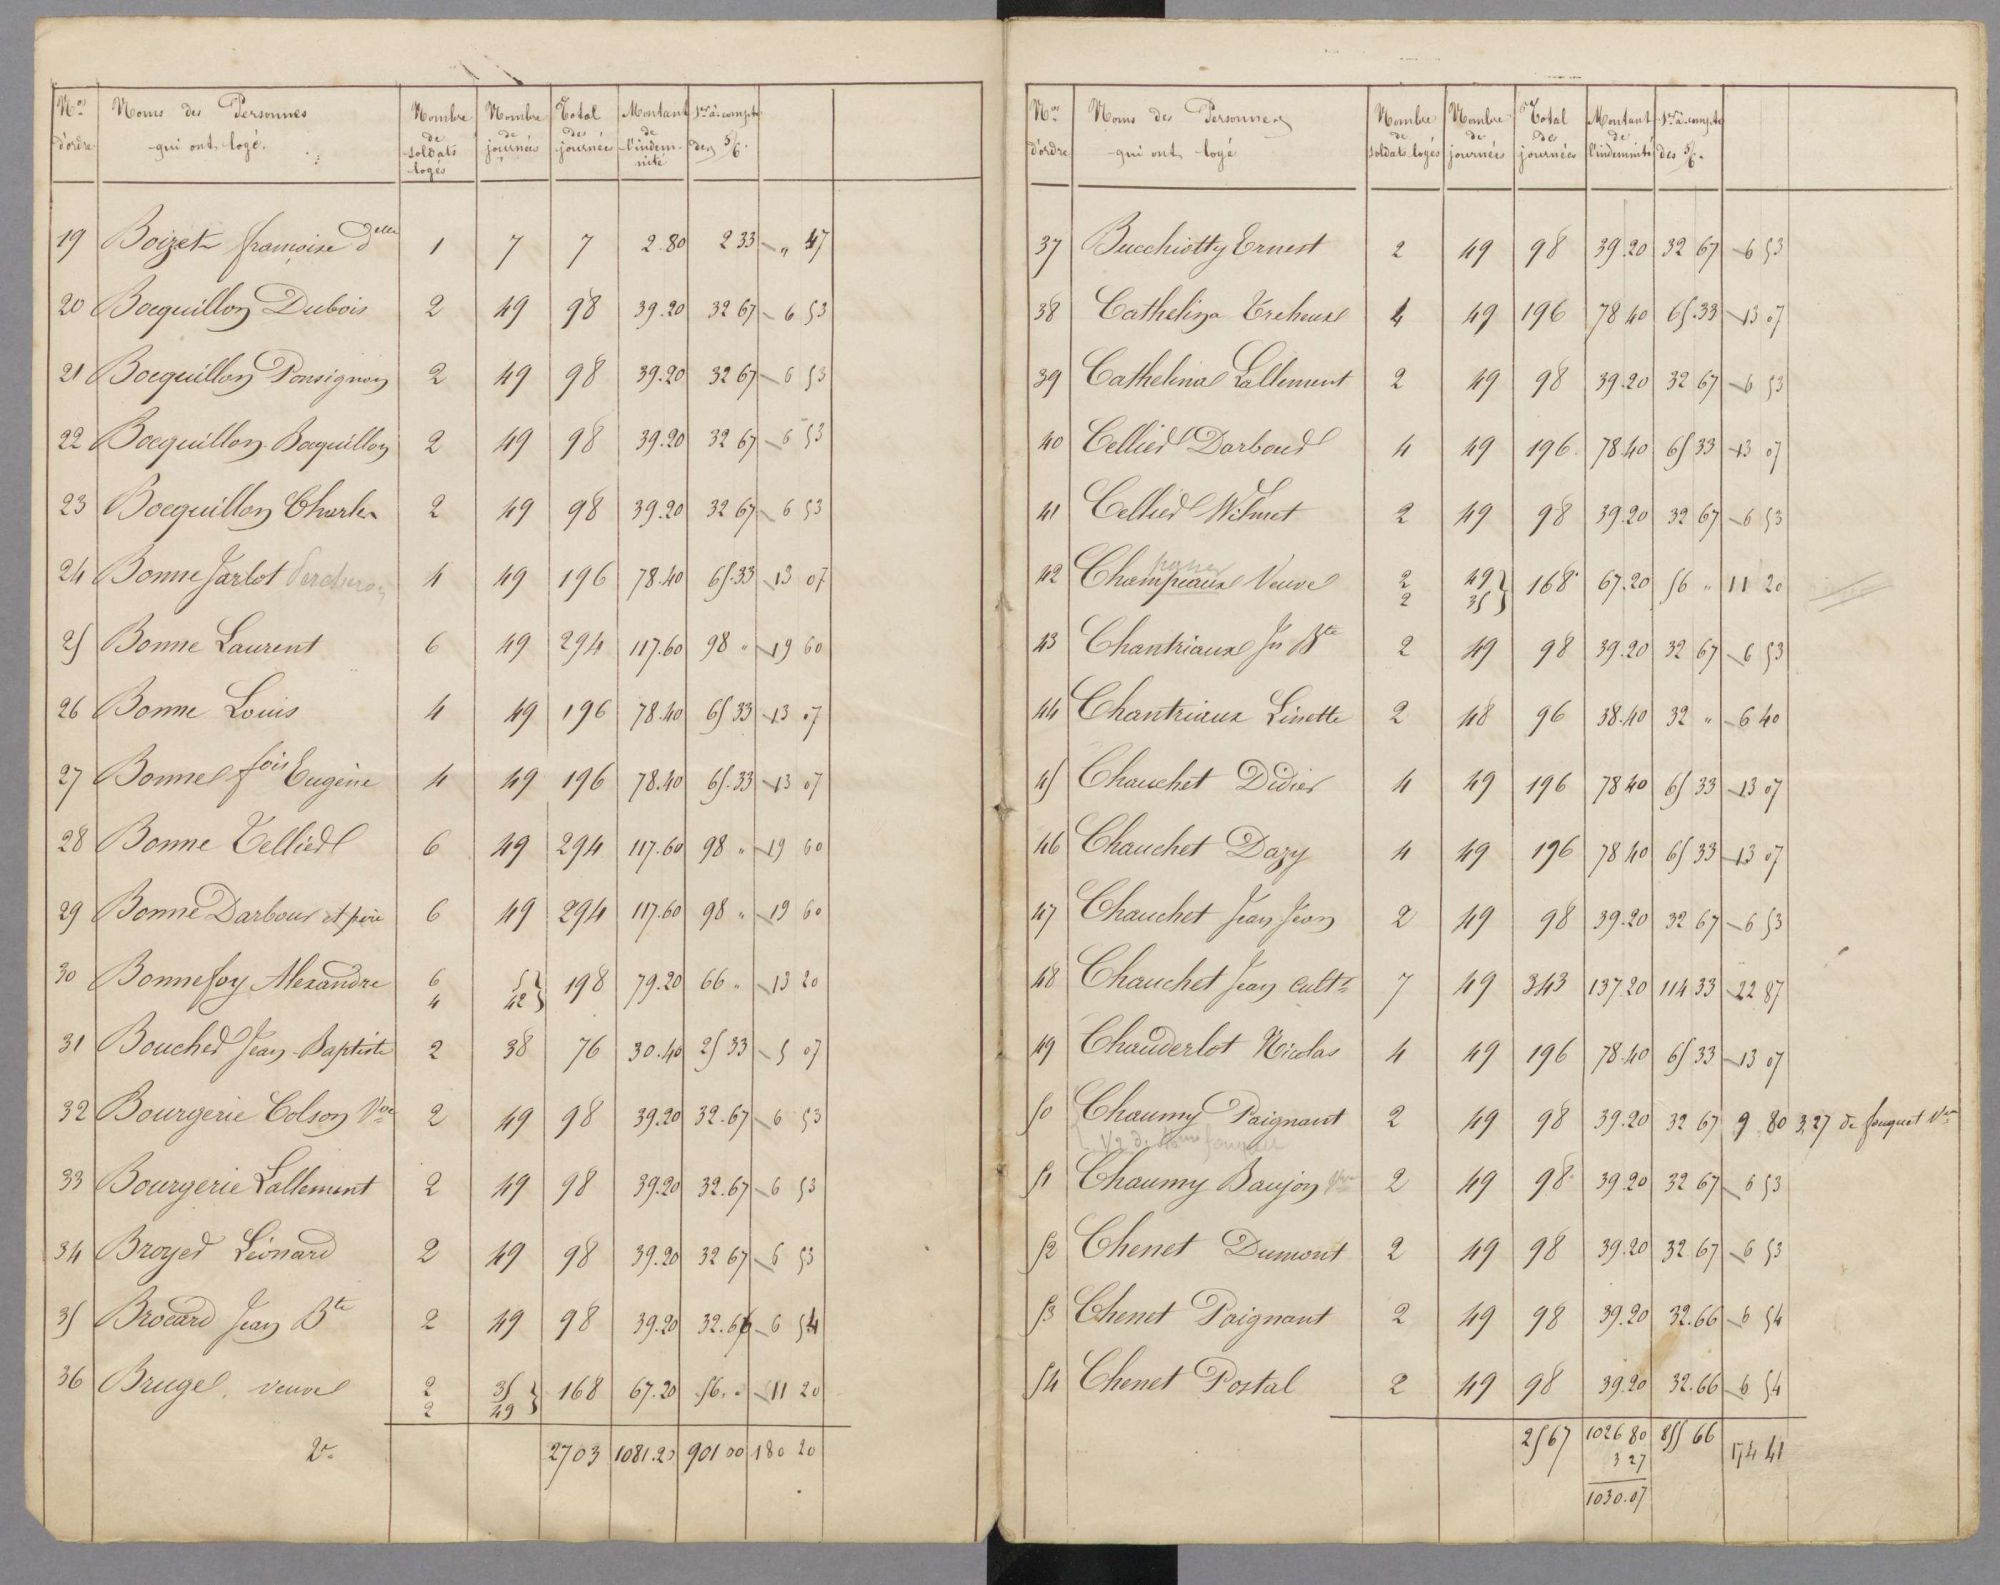 Nos d'ordre Noms des Personnes qui ont logé. Nombre de soldats logés Nombre de journées Total des journées Montant de l'indemnité 1er à-compte des 5/6.
19 Boizet françoise delle 1 7 7 2.80 2 33 " 47
20 Bocquillon Dubois 2 49 98 39.20 32 67 6 53
21 Bocquillon Ponsignon 2 49 98 39.20 32 67 6 53
22 Bocquillon Bocquillon 2 49 98 39.20 32 67 6 53
23 Bocquillon Charles 2 49 98 39.20 32 67 6 53
24 Bonne Jarlot Percheron 4 49 196 78.40 65.33 13 07
25 Bonne Laurent 6 49 294 117.60 98 " 19 60
26 Bonne Louis 4 49 196 78.40 65 33 13 07
27 Bonne fois Eugène 4 49 196 78.40 65.33 13 07
28 Bonne Tellier 6 49 294 117.60 98 " 19 60
29 Bonne Darbour et père 6 49 294 117.60 98 " 19 60
30 Bonnefoy Alexandre 6 5 } 198 79.20 66 " 13 20
4 42 }
31 Boucher Jean-Baptiste 2 38 76 30.40 25 33 5 07
32 Bourgerie Colson Vve 2 49 98 39.20 32.67 6 53
33 Bourgerie Lallement 2 49 98 39.20 32.67 6 53
34 Broyer Léonard 2 49 98 39.20 32 67 6 53
35 Brocard Jean Bte 2 49 98 39.20 32.66 6 54
36 Brugel, veuve 2 35 } 168 67.20 56. " 11 20
2 49 }
2703 1081.20 901 00 180 20
Nos d'ordre Noms des Personnes qui ont logé Nombre de soldats logés Nombre de journées Total des journées Montant de l'indemnité 1er à-compte des 5/6.
37 Bucchiotty Ernest 2 49 98 39.20 32 67 6 53
38 Cathelina Treheux 4 49 196 78 40 65.33 13 07
39 Cathelina Lallement 2 49 98 39.20 32 67 6 53
40 Cellier Darbour 4 49 196 78.40 65 33 13 07
41 Cellier Wilmet 2 49 98 39.20 32 67 6 53
42 Champeaux Veuve 2 49 } 168 67.20 56 " 11 20
2 35 }
43 Chantriaux Jn Bte 2 49 98 39.20 32 67 6 53
44 Chantriaux Linette 2 48 96 38.40 32 " 6 40
45 Chauchet Didier 4 49 196 78 40 65 33 13 07
46 Chauchet Dazy 4 49 196 78 40 65 33 13 07
47 Chauchet Jean Jean 2 49 98 39.20 32 67 6 53
48 Chauchet Jean cultr 7 49 343 137.20 114 33 22 87
49 Chauderlot Nicolas 4 49 196 78.40 65 33 13 07
50 Chaumy Paignant 2 49 98 39.20 32 67 9 80 3.27 de fouquet Vve
51 Chaumy Baujon 2 49 98 39.20 32 67 6 53
52 Chenet Dumont 2 49 98 39.20 32.67 6 53
53 Chenet Paignant 2 49 98 39.20 32.66 6 54
54 Chenet Postal 2 49 98 39.20 32.66 6 54
2567 1026 80 855 66 174 41
3 27
1030.07